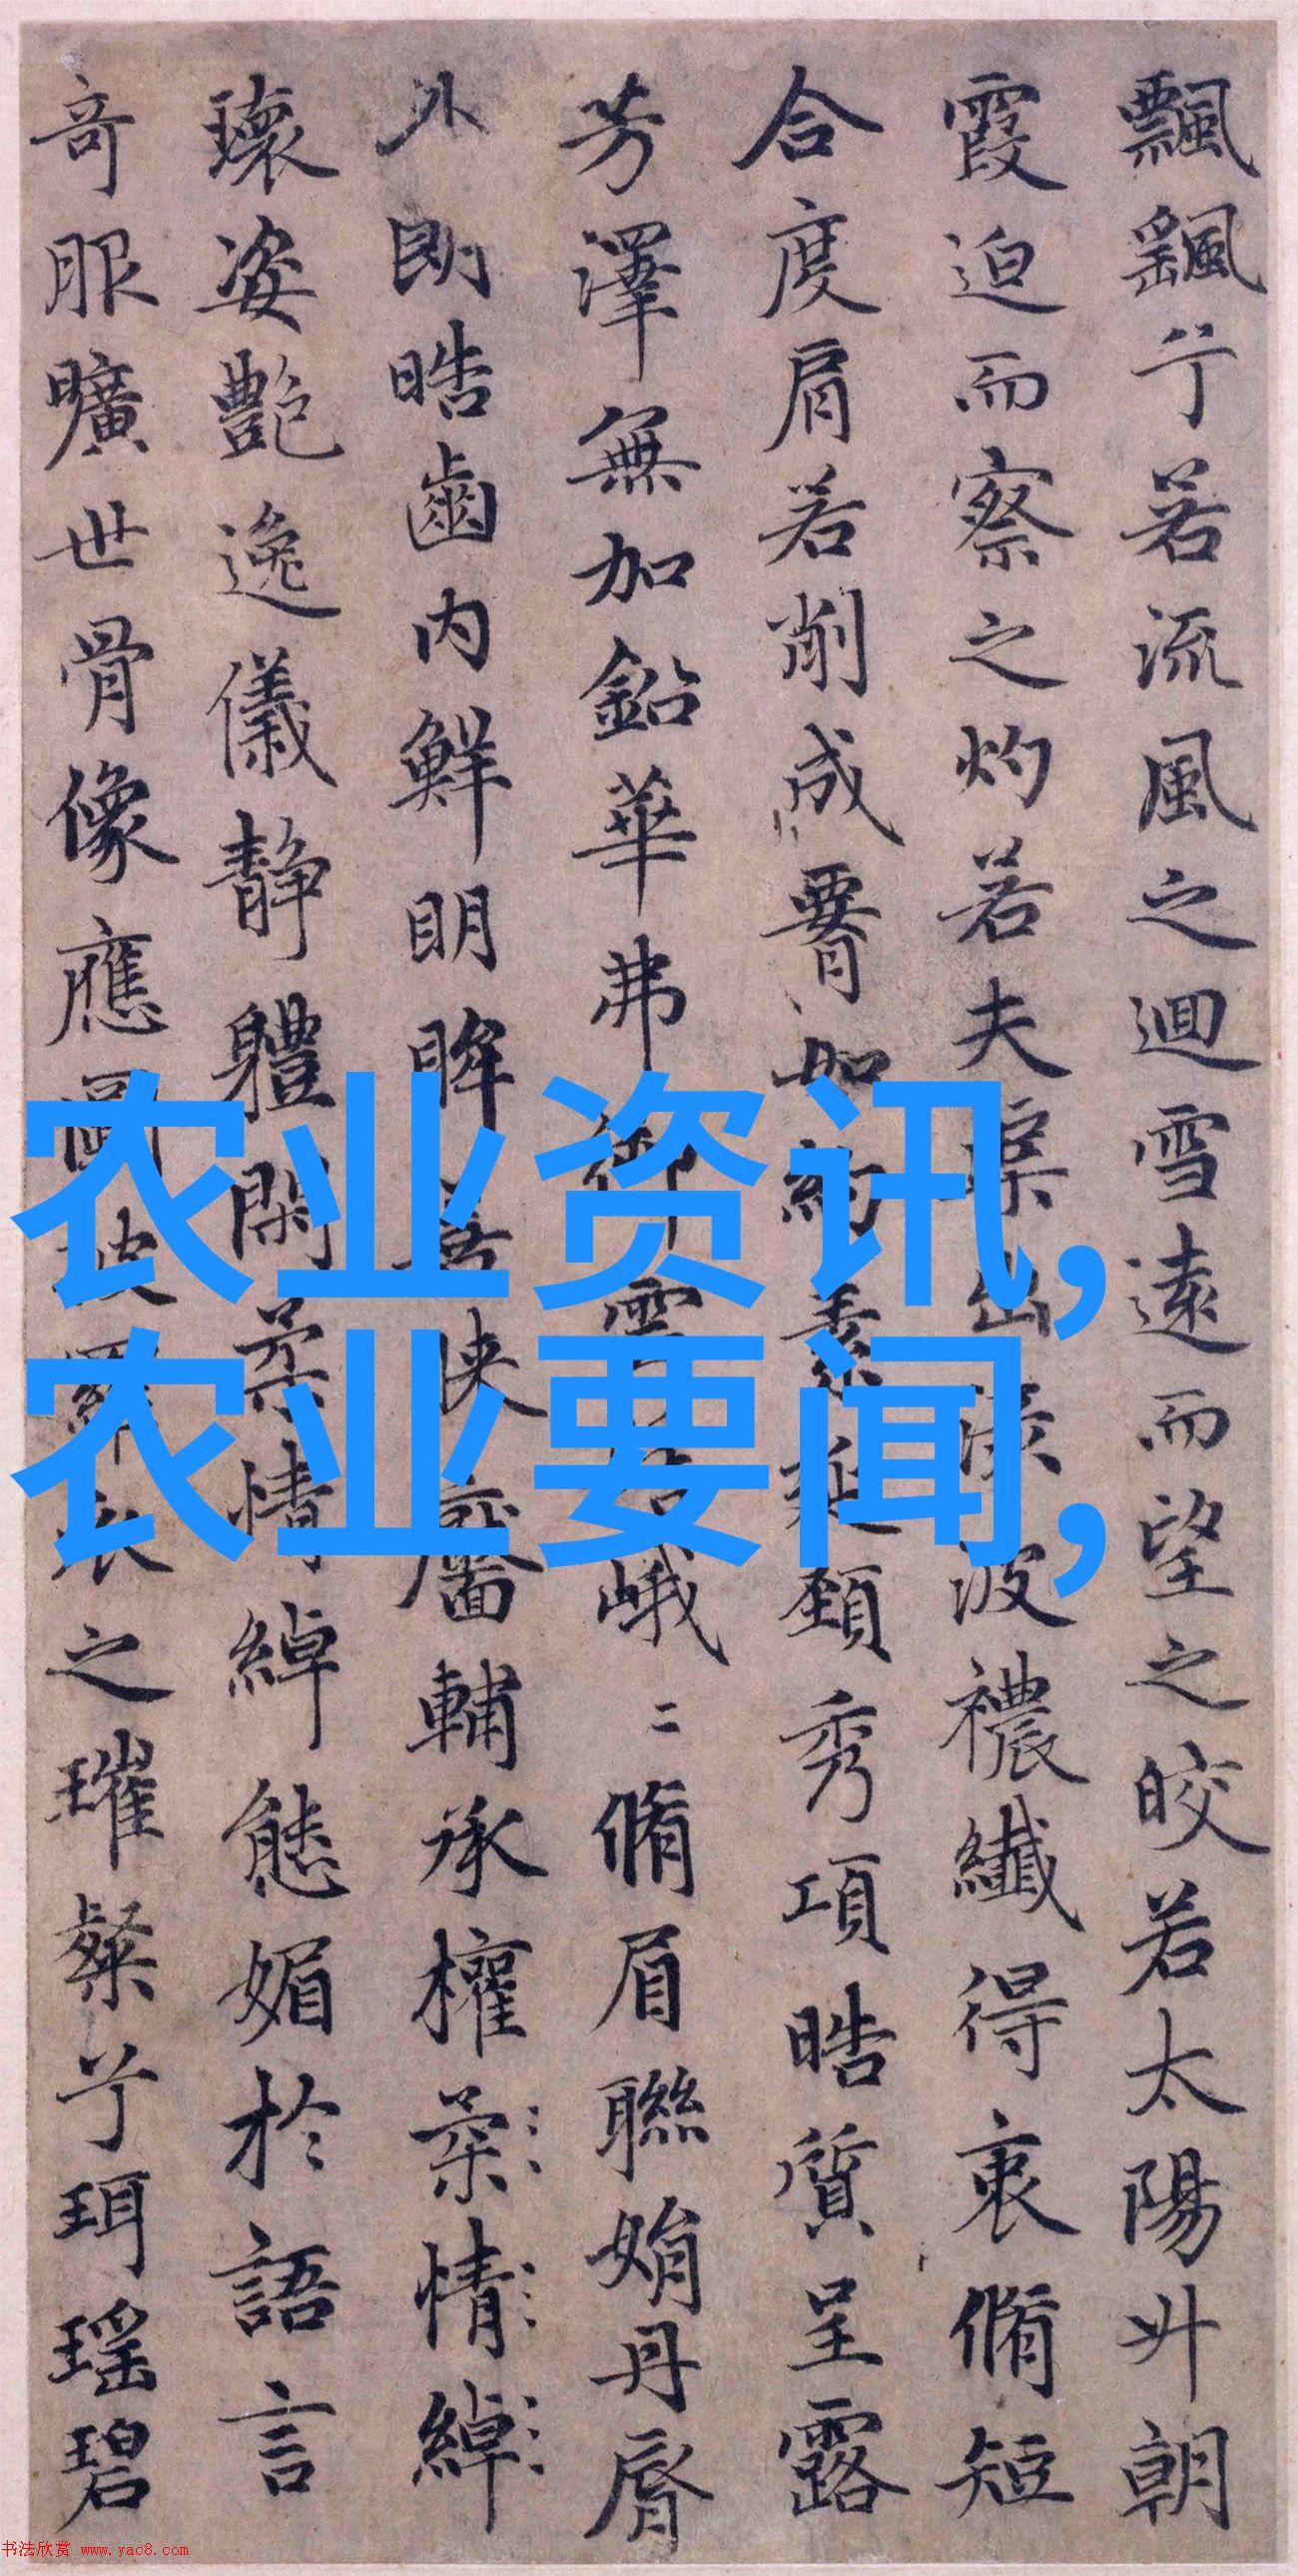 飄飖兮若流風之迴雪遠而望之皎若太陽升朝
霞迫而察之灼若夫渠出淥波襛纖得衷脩短
合度肩若削成䙅如約素延頸秀項皓質呈露
芳澤無加鉛華弗御雲髻峨〻脩眉聯娟丹脣
外朗皓齒内鮮明眸善睞靨輔承權柔情綽
瓌姿艶逸儀静體閑柔情綽態媚於語言
奇服曠世骨像應圖披羅衣之璀粲兮珥瑶碧
农业资讯,
农业要闻,
书法欣赏 www.yac8.com